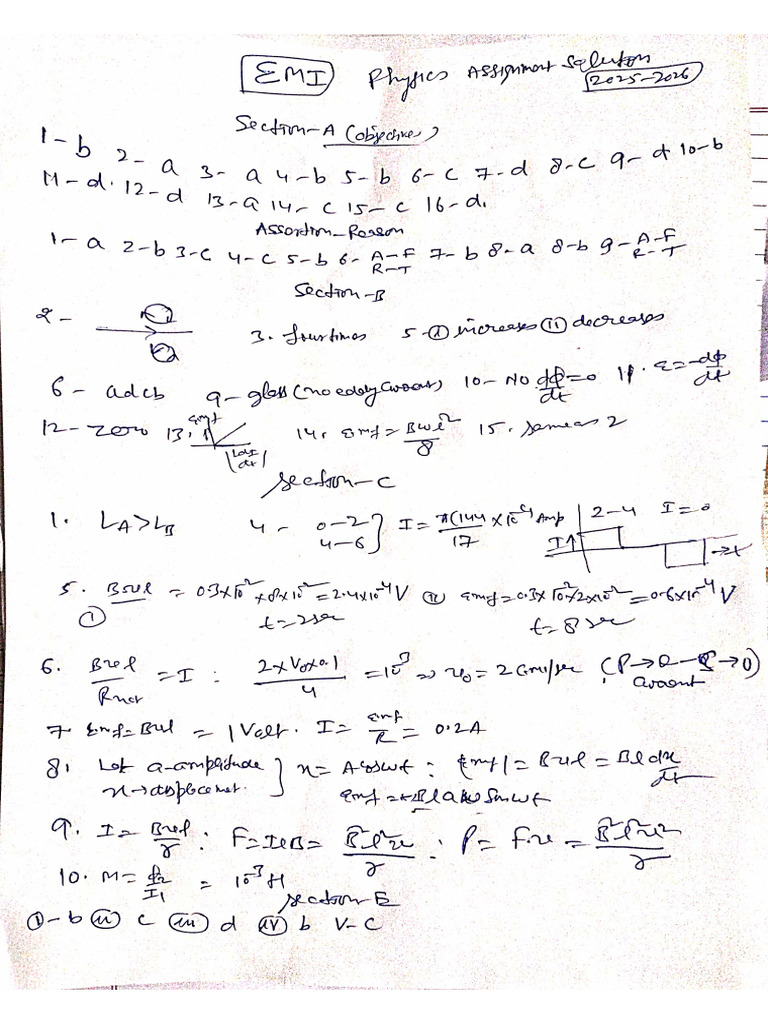 EMI Physics Assignment Solution 2025-2026
Section-A (objective)
1-b 2-a 3-a 4-b 5-b 6-c 7-d 8-c 9-d 10-b
11-d. 12-d 13-a 14-c 15-c 16-d.
Assertion-Reason
1-a 2-b 3-c 4-c 5-b 6- A-F R-T 7-b 8-a 8-b 9- A-F R-T
Section-B
2- 3. four times 5-(i) increases (ii) decreases
6- adcb 9- glass (no eddy current) 10- No dφ/dt=0 11. ε=-dφ/dt
12- zero 13. emf |dI/dt| 14. emf = Bωl²/8 15. same as 2
Section-C
1. LA>LB 4- 0-2 4-6} I= π(144×10⁻⁴/17 Amp 2-4 I=0 I↑ →t
5. (i) Bvl = 0.3×10⁻²×8×10⁻²=2.4×10⁻⁴V t=2sec (ii) emf=0.3×10⁻²×2×10⁻²=0.6×10⁻⁴V t=8sec
6. Bvl/Rnet =I : 2×V0×0.1/4 =10⁻³ ⇒ v0=2cm/sec
7. emf=Bvl = 1Volt. I= emf/R = 0.2A
8. Let a-amplitude x→displacement} x= A cosωt : |emf|=Bvl = Bl dx/dt
9. I= Bvl/r : F=IlB= B²l²v/r : P= F.v = B²l²v²/r
10. M= φ2/I1 = 10⁻³H
Section-E
(i)-b (ii) c (iii) d (iv) b V-C